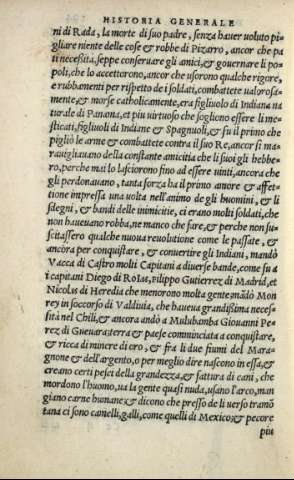 HISTORIA GENERALE
ni di Rada, la morte di suo padre, senza hauer uoluto pi-
gliare niente delle cose & robbe di Pizarro, ancor che pa
ti necessita, seppe conseruare gli amici, & gouernare li po-
poli, che lo accettorono, ancor che usorono qualche rigore,
e rubbamenti per rispetto de i soldati, combattete ualorosa-
mente, & morse catholicamente, era figliuolo di Indiana na
turale di Panama, et piu uirtuoso che sogliono essere li me-
sticati, figliuoli di Indiane & Spagnuoli, & fu il primo che
pigliò le arme & combattete contra il suo Re, ancor si ma-
rauigliauano della constante amicitia che li suoi gli hebbe-
ro, perche mai lo lasciorono fino ad essere uinti, ancora che
gli perdonauano, tanta forza ha il primo amore & affet-
tione impressa una uolta nell'animo de gli huomini, & li
sdegni, & bandi delle inimicitie, ci erano molti soldati, che
non haueuano robba, ne manco che fare, & perche non su-
scitassero qualche nuoua reuolutione come le passate, &
ancora per conquistare, & conuertire gli Indiani, mandò
Vacca di Castro molti Capitani a diuerse bande, come fu a
i capitani Diego di Rosas, philippo Gutierrez di Madrid, et
Nicolas di Heredia che menorono molta gente mãdò Mon
rey in soccorso di Valdiuia, che haueua grandissima neces-
sità nel Chili, & ancora andò a Mulubamba Giouanni Pe-
rez di Gueuara terra & paese comminciata a conquistare,
& ricca di minere di oro, & fra li due fiumi del Mara-
gnone & dell'argento, o per meglio dire nascono in essa, &
creano certi pesci della grandezza, & fattura di cani, che
mordono l'huomo, ua la gente quasi nuda, usano l'arco, man
giano carne humane & dicono che presso de li uerso tramõ
tana ci sono camelli, galli, come quelli di Mexico, & pecore
piu